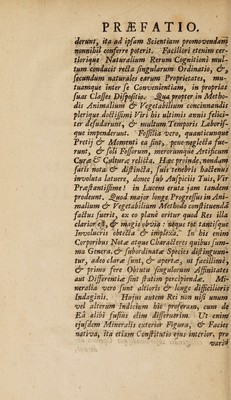 PRÆFATIO.
derunt, ita ad ipsam Scientiam promovendam
nonnihil conferre poterit. Faciliori etenim cer-
tiorique Naturalium Rerum Cognitioni mul-
tum conducit recta singularum Ordinatio, &,
secundum naturales earum Proprietates, mu-
tuamque inter se Convenientiam, in proprias
suas Classes Dispositio. Qua propter in Metho-
dis Animalium & Vegetabilium concinnandis
plerique doctissimi Viri his ultimis annis felici-
ter desudarunt, & multum Temporis Laboris-
que impenderunt. Fossilia vero, quanticunque
Pretij & Momenti ea sint, pene neglecta fue-
runt, & soli Fossorum, merorumque Artificum
Curæ & Culturæ relicta. Hæc proinde, nondum
satis nota & distincta, suis tenebris hactenus
involuta latuere, donec sub Auspiciis Tuis, Vir
Præstantissime! in Lucem eruta jam tandem
prodeunt. Quod major longe Progressus in Ani-
malium & Vegetabilium Methodo constituenda
factus fuerit, ex eo plane oritur quod Res illa
clarior est, & magis obvia: neque tot tantisque
Involucris obtecta & implexa. In his enim
Corporibus Notæ atque Characteres quibus sum-
ma Genera, & subordinatæ Species distinguun-
tur, adeo claræ sunt, & apertæ, ut facillimè,
& primo fere Obtutu singulorum Affinitates
aut Differentiæ sint statim percipiendæ. Mi-
neralia vero sunt altioris & longe difficilioris
Indaginis. Hujus autem Rei non nisi unum
vel alterum Indicium hic proferam, cum de
Eâ alibi fusius olim disseruerim. Ut enim
ejusdem Mineralis exterior Figura, & Facies
nativa, ita etiam Constitutio ejus interior, pro
variâ